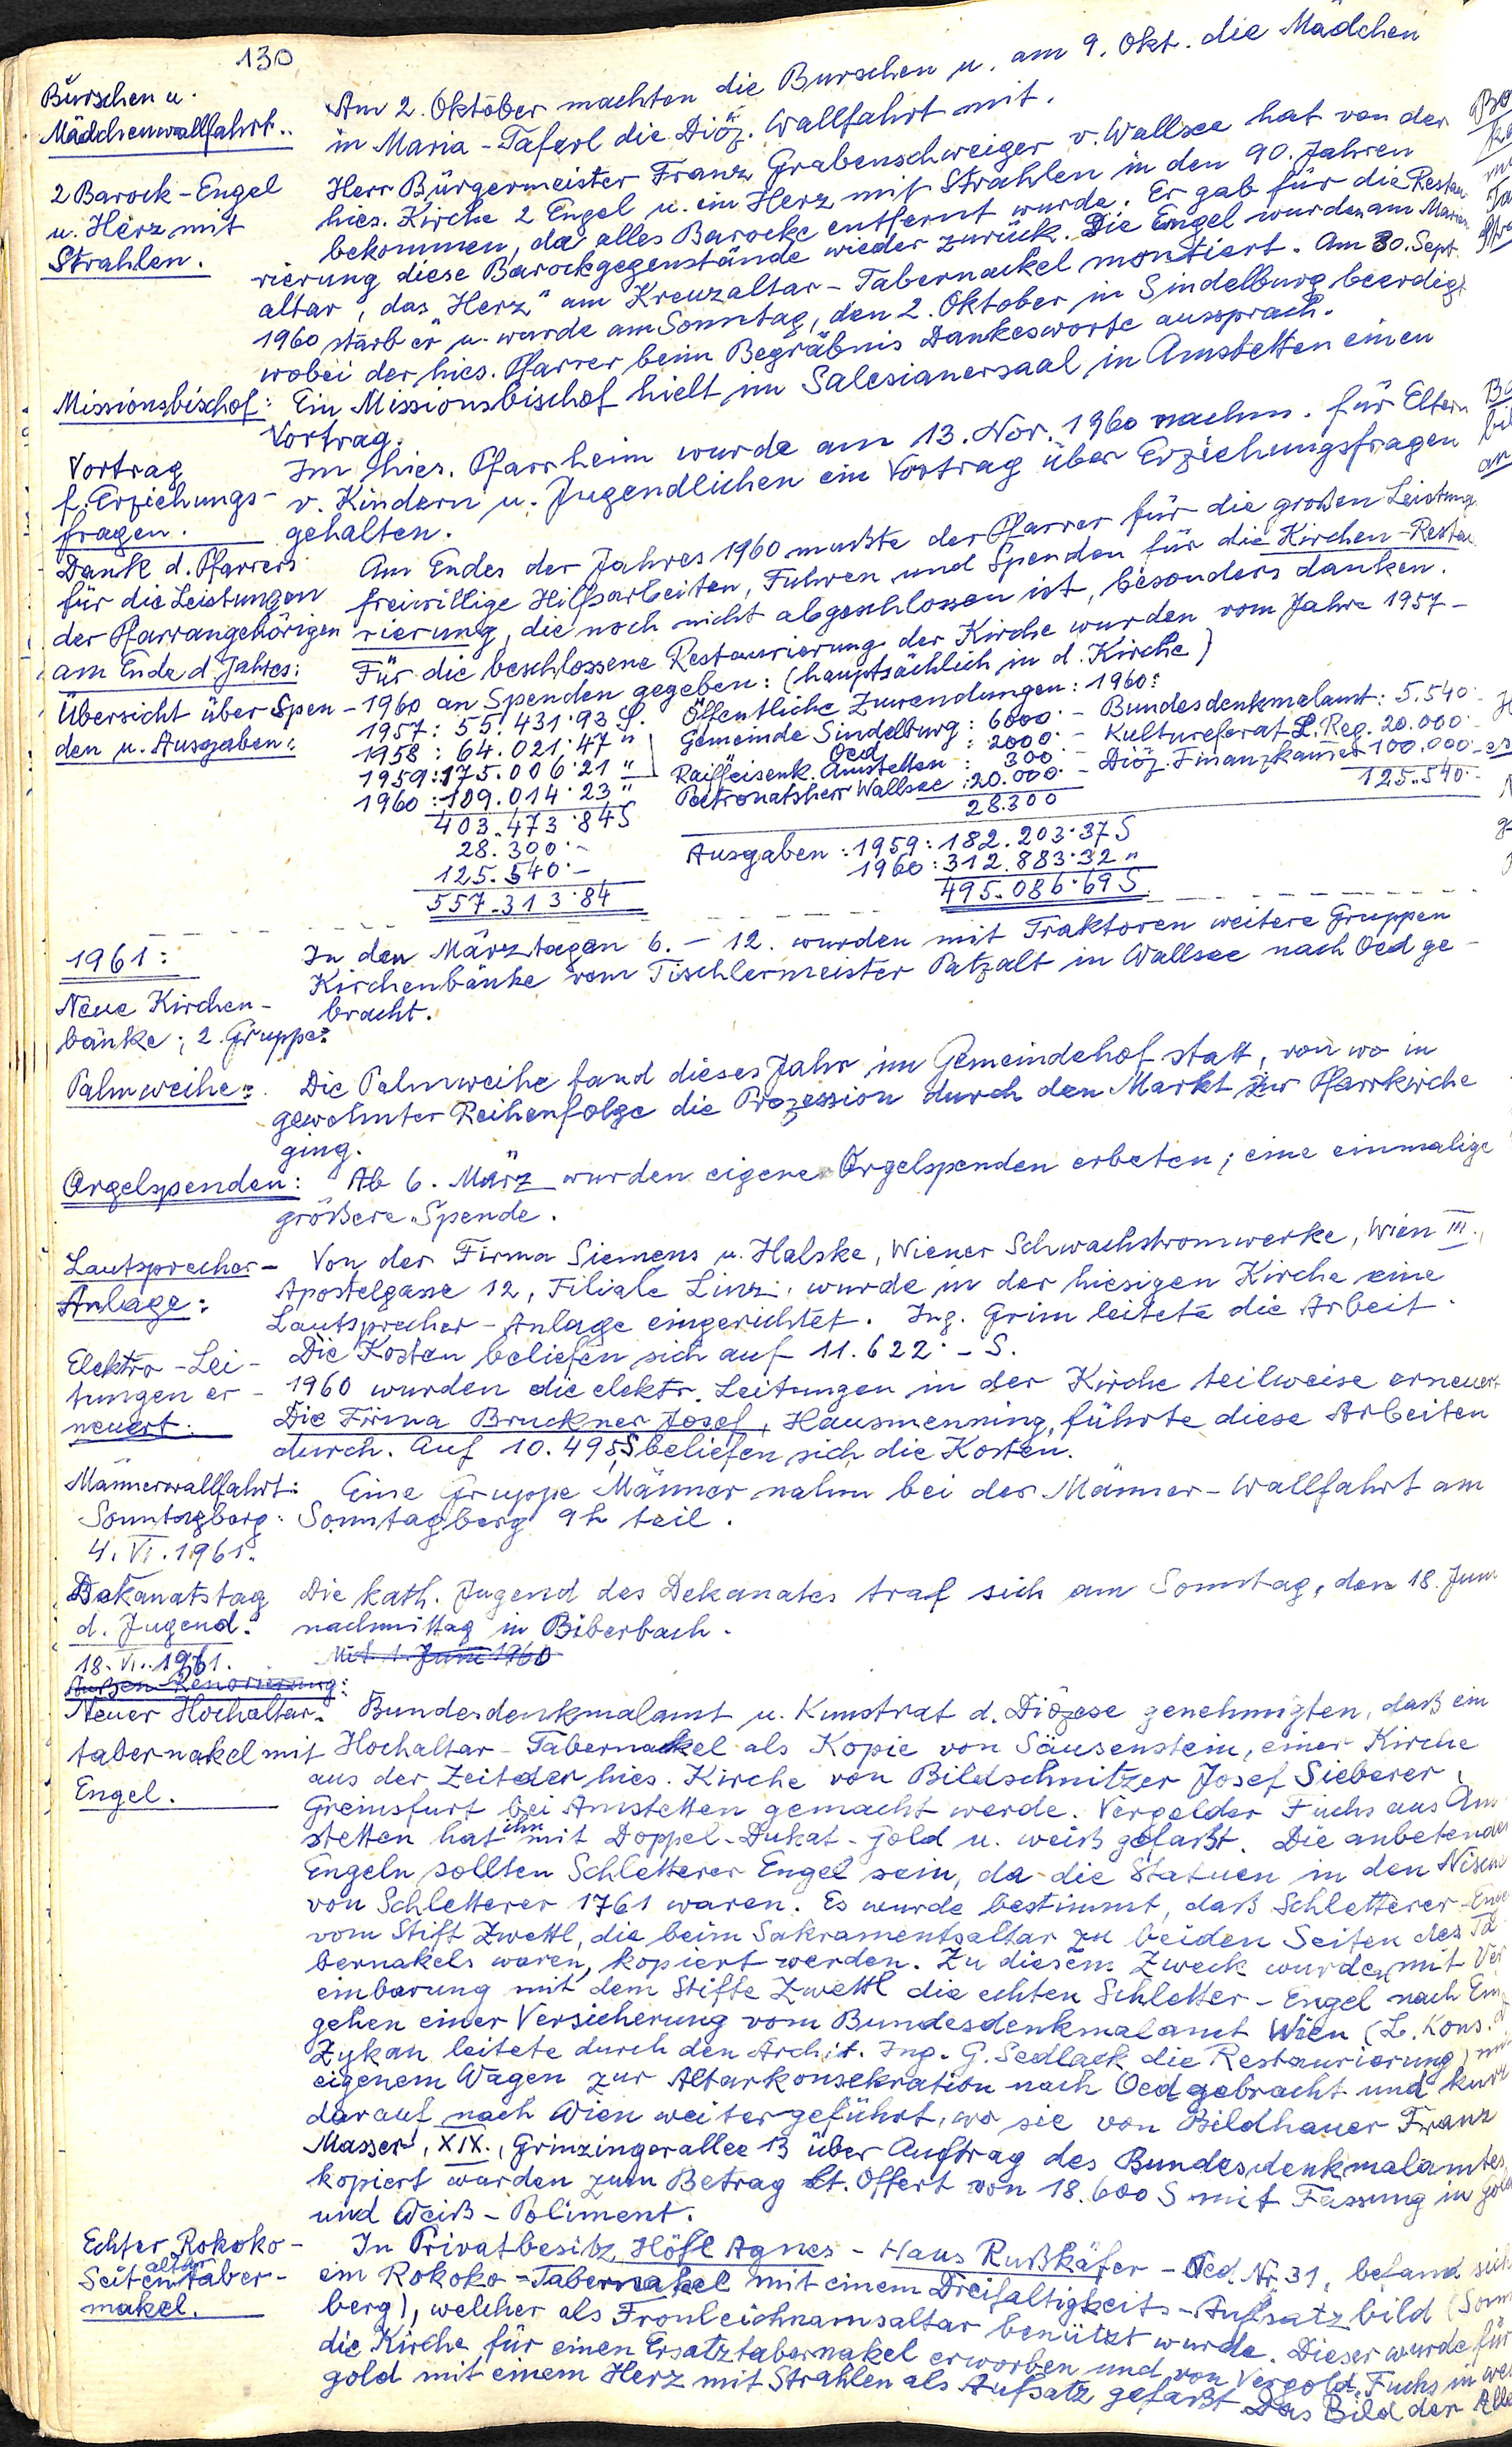 130
Burschen u.
Mädchenwallfahrt..
Am 2. Oktober machten die Burschen u. am 9. Okt. die Mädchen
in Maria-Taferl die Diöz. Wallfahrt mit.
2 Barock-Engel
u. Herz mit
Strahlen.
Herr Bürgermeister Franz Grabenschweiger v. Wallsee hat von der
hies. Kirche 2 Engel u. ein Herz mit Strahlen in den 90. Jahren
bekommen, da alles Barocke entfernt wurde. Er gab für die Restau
rierung diese Barockgegenstände wieder zurück. Die Engel wurden am Marien
altar, das "Herz" am Kreuzaltar-Tabernackel montiert. Am 30. Sept.
1960 starb er u. wurde am Sonntag, den 2. Oktober in Sindelburg beerdigt
wobei der hies. Pfarrer beim Begräbnis Dankesworte aussprach.
Missionsbischof:
Ein Missionsbischof hielt im Salesianersaal in Amstetten einen
Vortrag.
Vortrag
f. Erziehungs-
fragen.
Im hies. Pfarrheim wurde am 13. Nov. 1960 nachm. für Eltern
v. Kindern u. Jugendlichen ein Vortrag über Erziehungsfragen
gehalten.
Dank d. Pfarrers
für die Leistungen
der Pfarrangehörigen
am Ende d. Jahres:
Am Endes der Jahres 1960 mußte der Pfarrer für die großen Leistung
freiwillige Hilfsarbeiten, Fuhren und Spenden für die Kirchen-Restau
rierung, die noch nicht abgeschlossen ist, besonders danken.
Übersicht über Spen-
den u. Ausgaben:
Für die beschlossene Restaurierung der Kirche wurden vom Jahre 1957-
1960 an Spenden gegeben: (hauptsächlich in d. Kirche)
1957: 55.431·93 S.
1958: 64.021·47 "
1959: 175.006·21 "
1960: 109.014·23 "
403.473·84 S
28.300·-
125.540·-
557.313·84
Öffentliche Zuwendungen: 1960:
Gemeinde Sindelburg: 6000·- Bundesdenkmalamt: 5.540·-
Oed : 2000·- Kulturreferat L. Reg. 20.000·-
Raiffeisenk. Amstetten: 300 - Diöz. Finanzkammer 100.000·-
Patronatsherr Wallsee: 20.000·-
28.300
125.540·-
Ausgaben: 1959: 182.203·37 S
1960: 312.883·32 "
495.086·69 S
1961:
Neue Kirchen-
bänke; 2. Gruppe:
In den Märztagen 6. - 12. wurden mit Traktoren weitere Gruppen
Kirchenbänke vom Tischlermeister Patzalt in Wallsee nach Oed ge-
bracht.
Palmweihe:
Die Palmweihe fand dieses Jahr im Gemeindehof statt, von wo in
gewohnter Reihenfolge die Prozession durch den Markt zur Pfarrkirche
ging.
Orgelspenden:
Ab 6. März wurden eigene Orgelspenden erbeten; eine einmalige
größere Spende.
Lautsprecher-
Anlage:
Von der Firma Siemens u. Halske, Wiener Schwachstromwerke, Wien III.,
Apostelgasse 12, Filiale Linz, wurde in der hiesigen Kirche eine
Lautsprecher-Anlage eingerichtet. Ing. Grim leitete die Arbeit.
Die Kosten beliefen sich auf 11.622·- S.
Elektro-Lei-
tungen er-
neuert.
1960 wurden die elektr. Leitungen in der Kirche teilweise erneuert
Die Firma Bruckner Josef, Hausmenning, führte diese Arbeiten
durch. Auf 10.495 S beliefen sich die Kosten.
Männerwallfahrt:
Sonntagberg:
4. VI. 1961.
Eine Gruppe Männer nahm bei der Männer-Wallfahrt am
Sonntagberg 9h teil.
Dekanatstag
d. Jugend:
18. VI. 1961.
Die kath. Jugend des Dekanates traf sich am Sonntag, den 18. Juni
nachmittag in Biberbach.
Mit 1. Juni 1960
Außen-Renovierung:
Neuer Hochaltar-
tabernakel mit
Engel.
Bundesdenkmalamt u. Kunstrat d. Diözese genehmigten, daß ein
Hochaltar-Tabernakel als Kopie von Säusenstein, einer Kirche
aus der Zeit der hies. Kirche von Bildschnitzer Josef Sieberer,
Greinsfurt bei Amstetten gemacht werde. Vergolder Fuchs aus Am
stetten hat ihn mit Doppel-Dukat-Gold u. weiß gefaßt. Die anbetenden
Engeln sollten Schletterer Engel sein, da die Statuen in den Nischen
von Schletterer 1761 waren. Es wurde bestimmt, daß Schletterer-Engel
vom Stift Zwettl, die beim Sakramentsaltar zu beiden Seiten des Ta
bernakels waren, kopiert werden. Zu diesem Zweck wurden mit Ver
einbarung mit dem Stifte Zwettl die echten Schletter-Engel nach Ein
gehen einer Versicherung vom Bundesdenkmalamt Wien (L. Kons.
Zykan leitete durch den Archit. Ing. G. Sedlack die Restaurierung) mit
eigenem Wagen zur Altarkonsekration nach Oed gebracht und kurz
darauf nach Wien weitergeführt, wo sie von Bildhauer Franz
Masser, XIX., Grinzingerallee 13 über Auftrag des Bundesdenkmalamtes
kopiert wurden zum Betrag lt. Offert von 18.600 S mit Fassung in Gold
und Weiß-Poliment.
Echter Rokoko-
Seitenaltartaber-
nakel.
In Privatbesitz Höfl Agnes - Haus Rußkäfer - Oed Nr. 31, befand sich
ein Rokoko-Tabernakel mit einem Dreifaltigkeits-Aufsatzbild (Sonn
berg), welcher als Fronleichnamsaltar benützt wurde. Dieser wurde für
die Kirche für einen Ersatztabernakel erworben und von Vergold. Fuchs in wei
gold mit einem Herz mit Strahlen als Aufsatz gefaßt. Das Bild der Alle